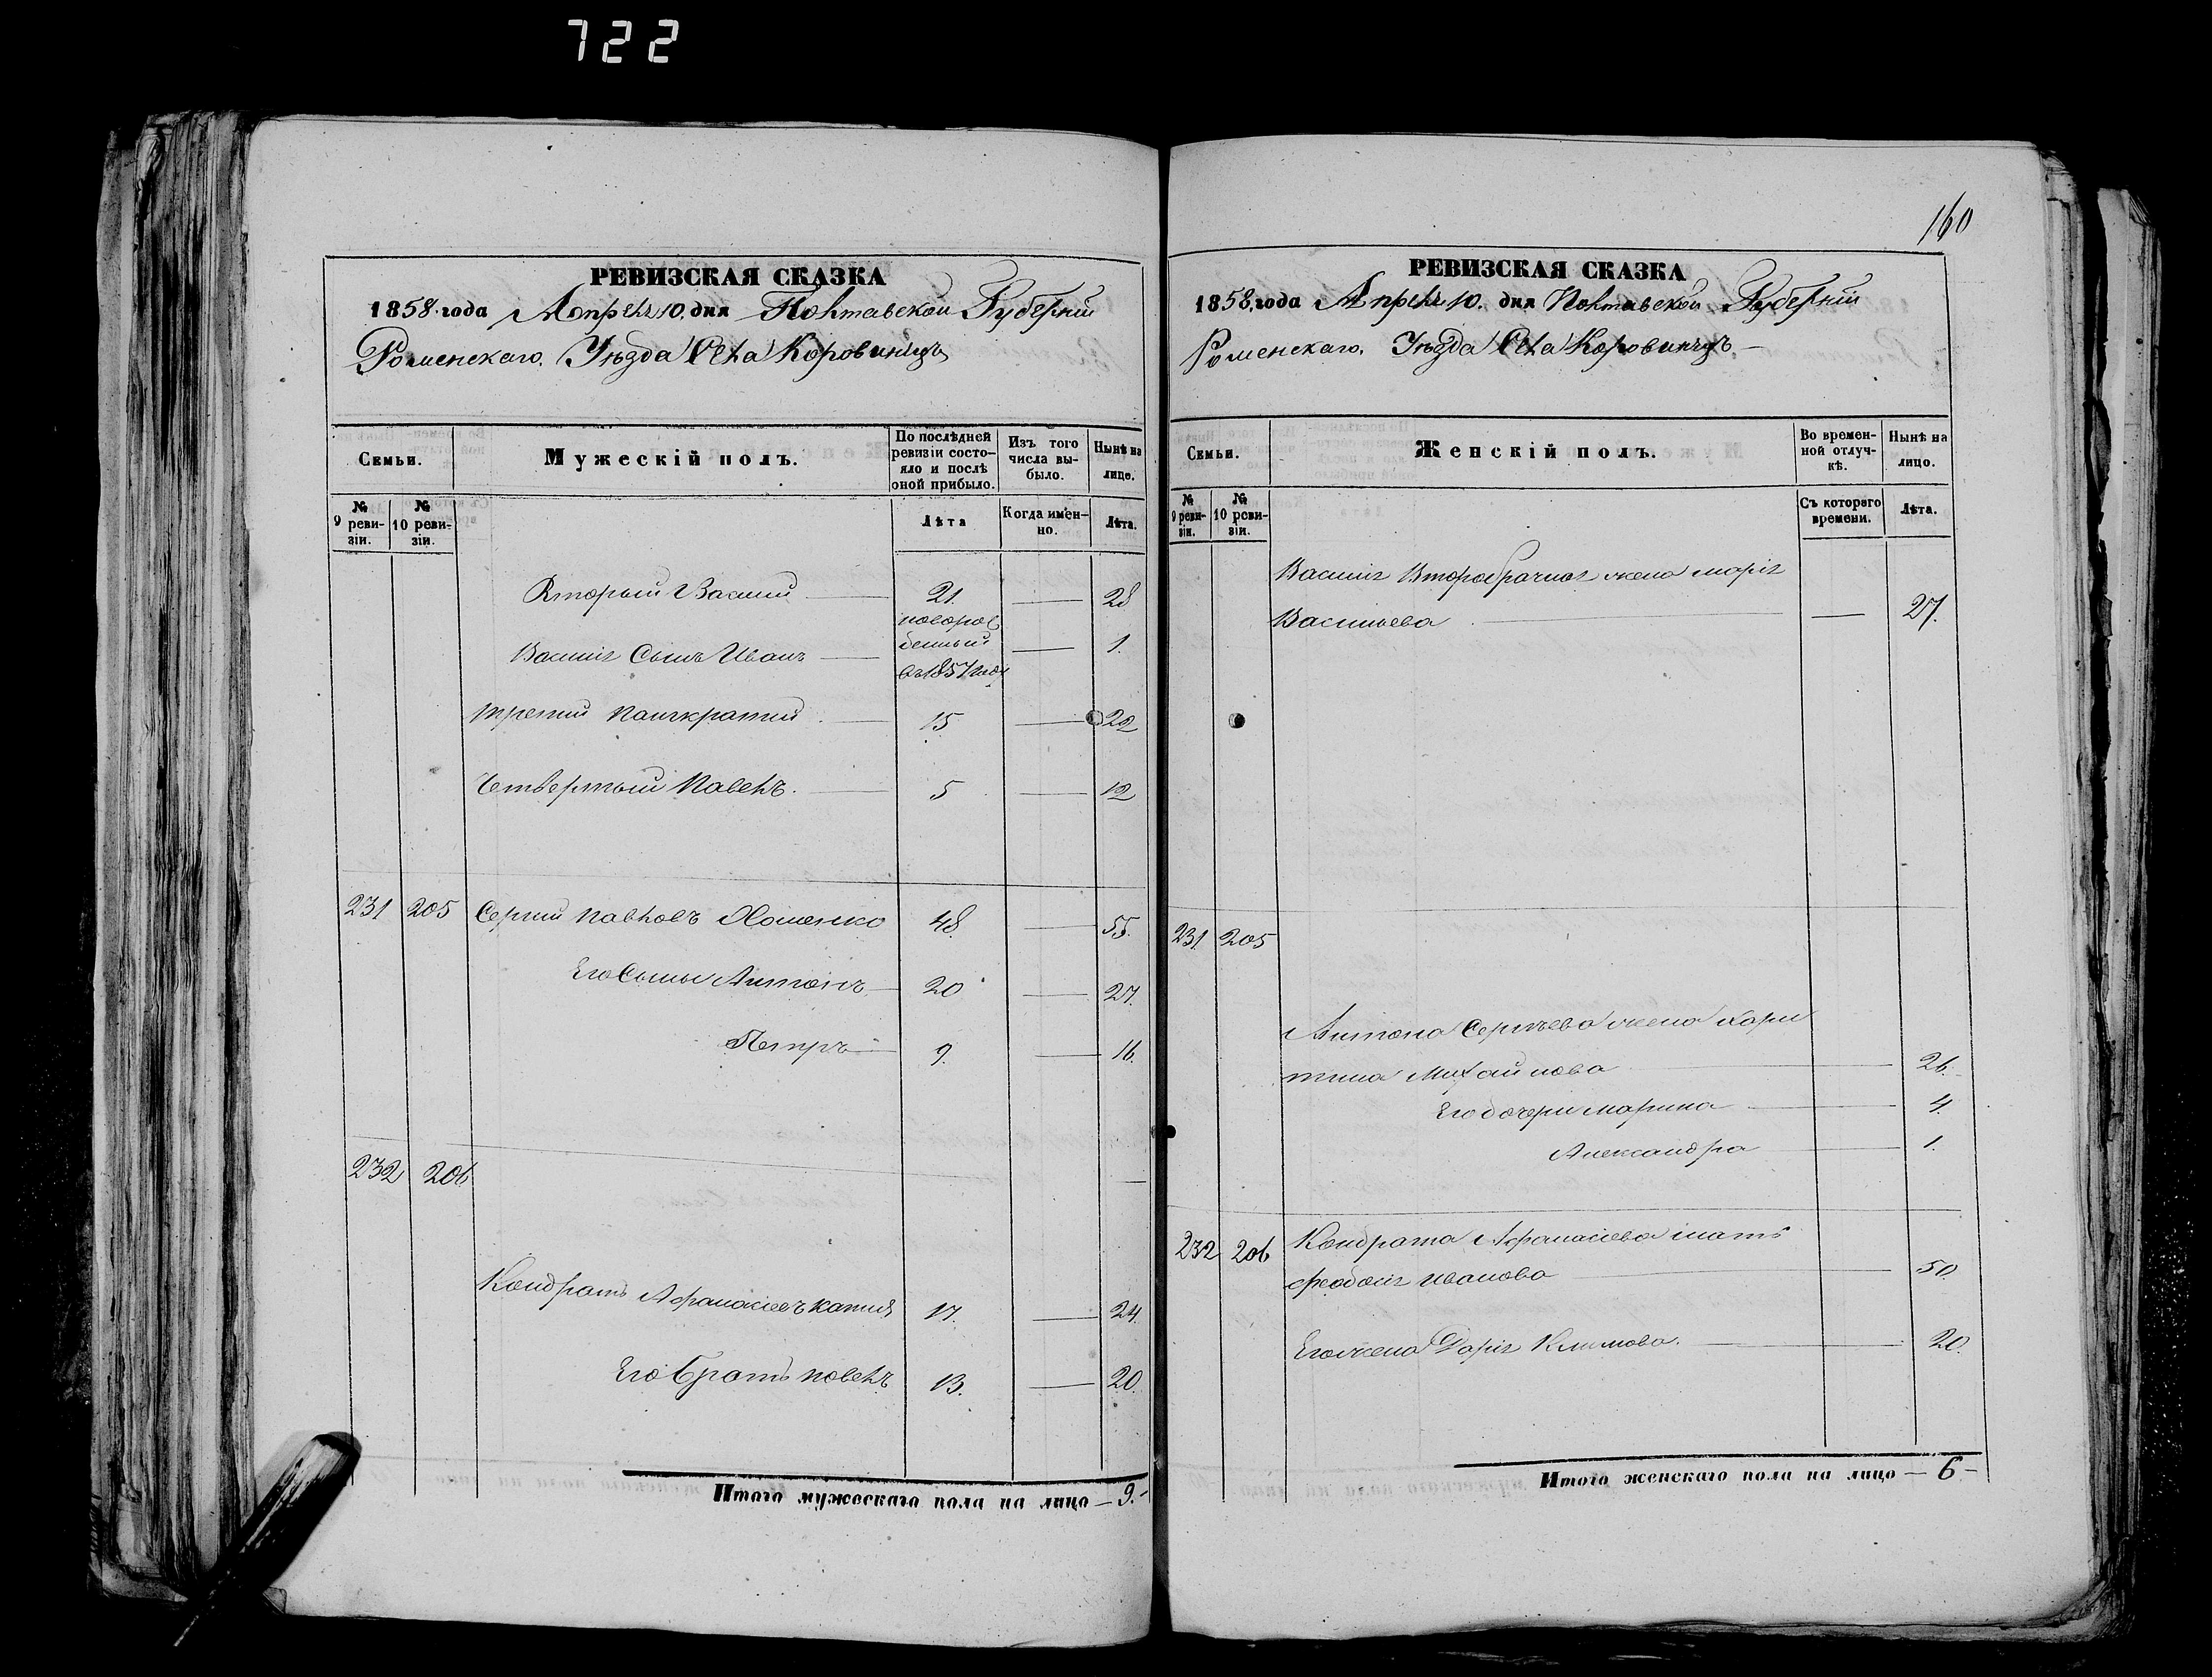 722
РЕВИЗСКАЯ СКАЗКА
1858 года Апреля 10. дня Полтавской Губернiи
Роменскаго. Уѣзда Села Коровинецъ
Семьи.
Мужескій полъ.
По послѣдней ревизіи состояло и послѣ оной прибыло.
Изъ того числа выбыло.
Нынѣ на лице.
№ 9 ревизіи.
№ 10 ревизіи.
Лѣта
Когда именно.
Лѣта.
Вторый Василий — 21. — 28
Василия Сынъ Иванъ — новорожденный въ 1857 году — 1.
третий Панкратий — 15 — 22
Четвертый Павелъ. — 5 — 12
231 205 Сергий Павловъ Хоменко 48 — 55.
Его Сыны Антонъ — 20 — 27.
Петръ — 9. — 16.
232 206
Кондратъ Афанасиевъ 17. — 24.
Его братъ Павелъ 13. — 20.
Итого мужескаго пола на лицо — 9. —
160
РЕВИЗСКАЯ СКАЗКА
1858, года Апреля 10. дня Полтавской Губернiи
Роменскаго. Уѣзда Села Коровинецъ —
Семьи.
Женскій полъ.
Во временной отлучкѣ.
Нынѣ на лицо.
№ 9 ревизіи.
№ 10 ревизіи.
Съ котораго времени.
Лѣта.
Василия Второбрачная жена Мария
Васильева — — 27.
231 205
Антона Сергѣева жена Хари
тина Михайлова — 26.
Его дочери Марина — 4.
Александра — 1.
232 206 Кондрата Афанасиева мать
Феодосия Иванова — 50.
Его жена Дария Климова. — 20.
Итого женскаго пола на лицо — 6 —